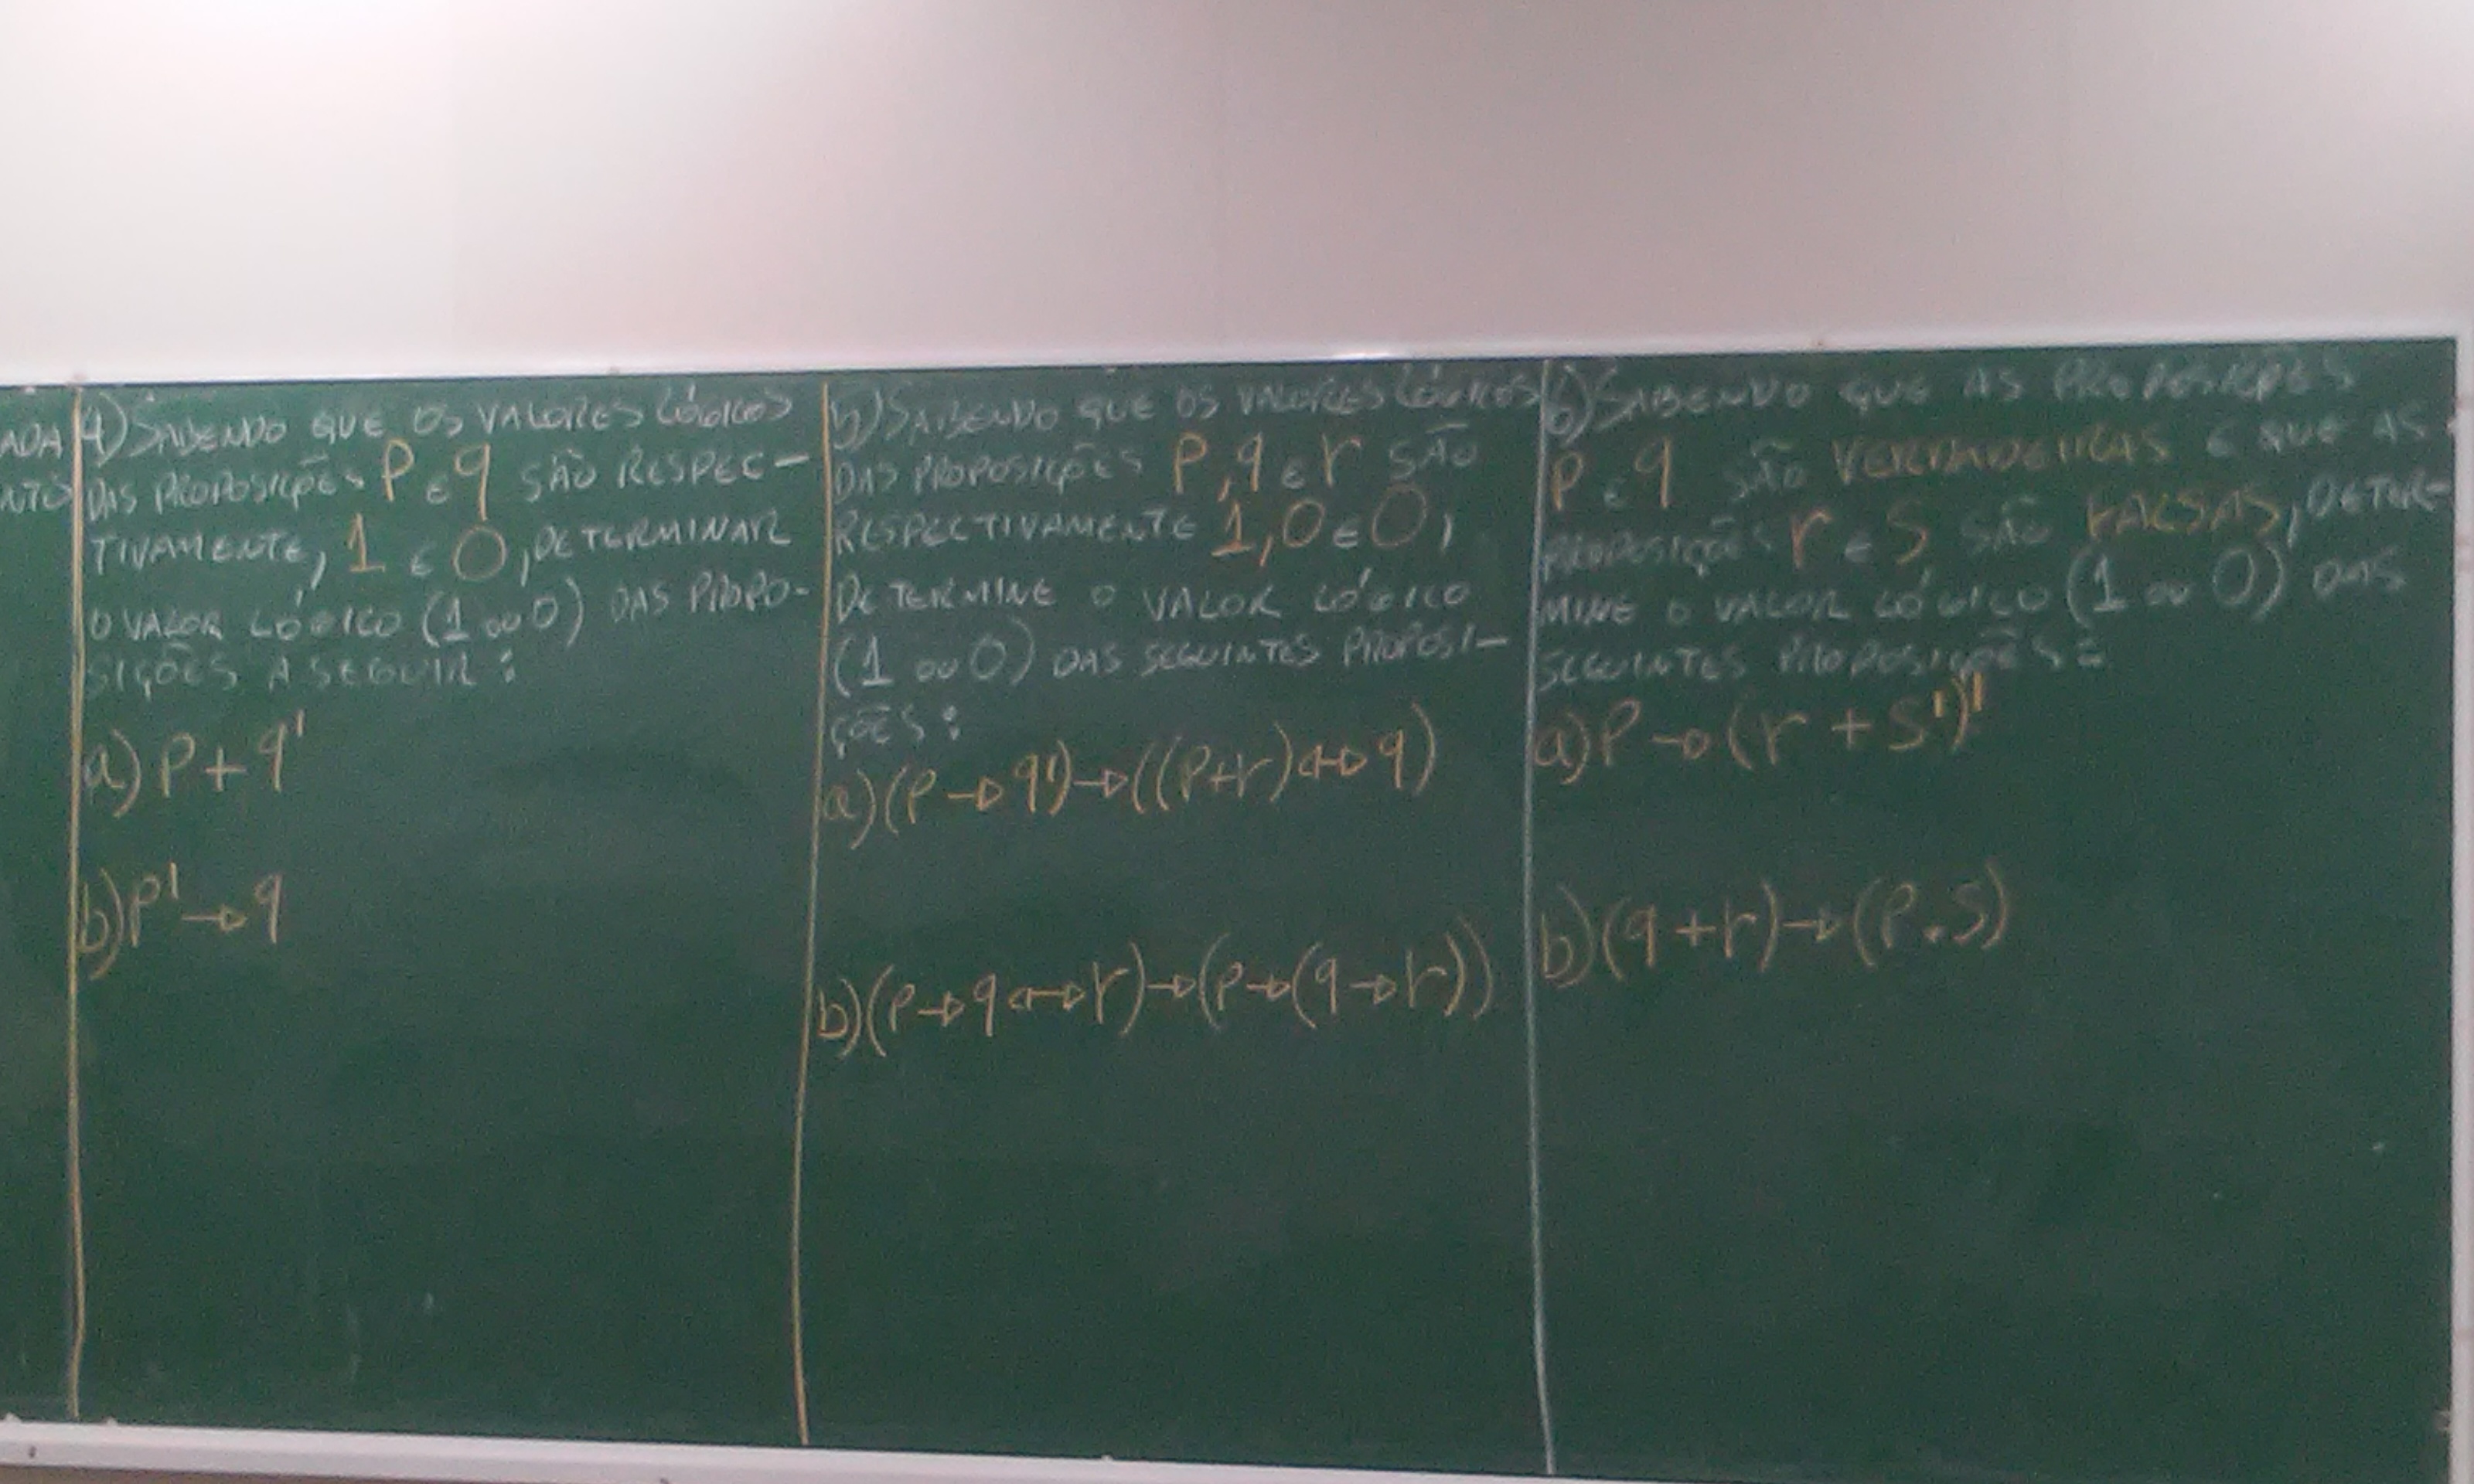 ADA
NTO
4) SABENDO QUE OS VALORES LÓGICOS
DAS PROPOSIÇÕES P E q SÃO RESPEC-
TIVAMENTE, 1 E 0, DETERMINAR
O VALOR LÓGICO (1 OU 0) DAS PROPO-
SIÇÕES A SEGUIR:
a) P + q'
b) P' → q
5) SABENDO QUE OS VALORES LÓGICOS
DAS PROPOSIÇÕES P, q E r SÃO
RESPECTIVAMENTE 1, 0 E 0,
DETERMINE O VALOR LÓGICO
(1 OU 0) DAS SEGUINTES PROPOSI-
ÇÕES:
a) (P → q') → ((P + r) ↔ q)
b) (P → q ↔ r) → (P → (q → r))
6) SABENDO QUE AS PROPOSIÇÕES
P E q SÃO VERDADEIRAS E QUE AS
PROPOSIÇÕES r E S SÃO FALSAS, DETER-
MINE O VALOR LÓGICO (1 OU 0) DAS
SEGUINTES PROPOSIÇÕES:
a) P → (r + S')'
b) (q + r) → (P . S)